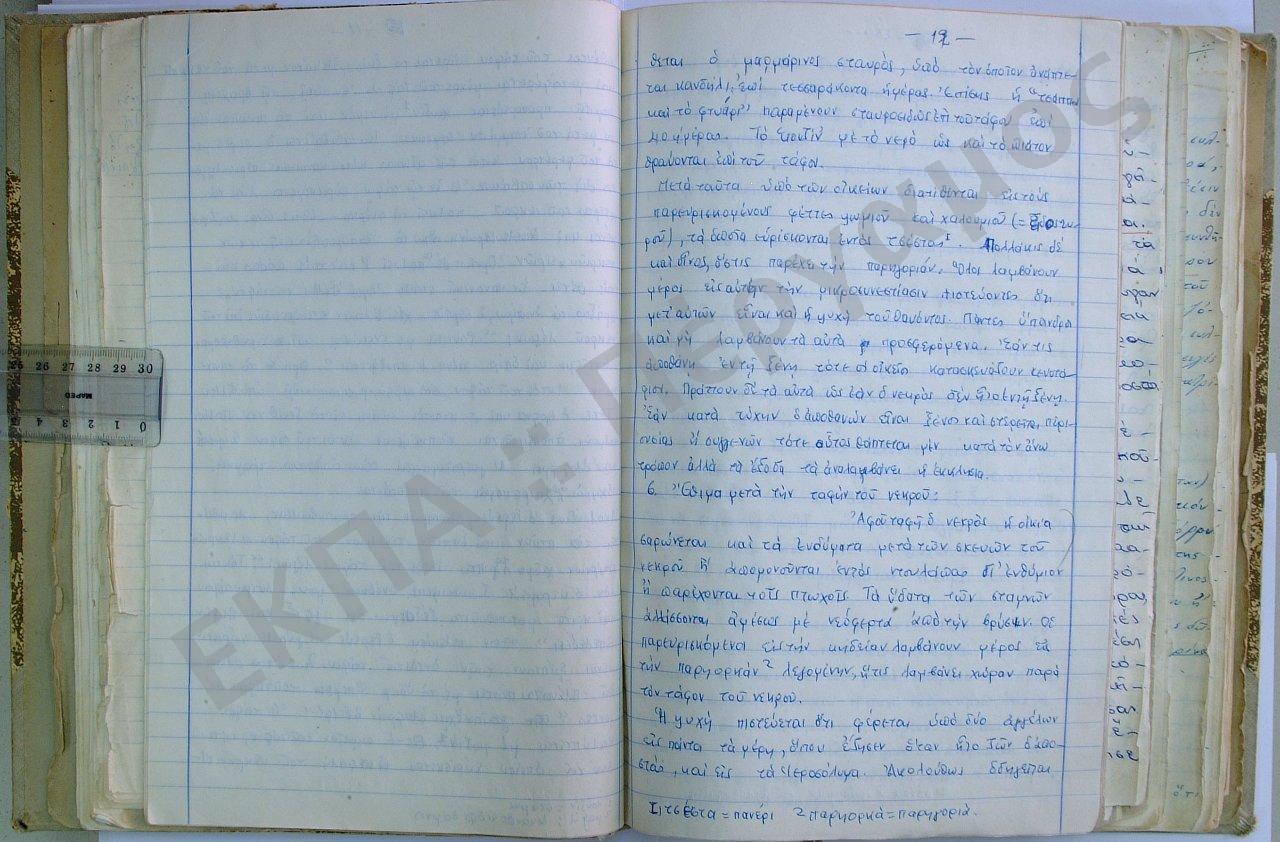 — 12 —
θεται ὁ μαρμάρινος σταυρός, ὑπὸ τὸν ὁποῖον ἀνάπτε-
ται κανδήλι, ἐπὶ τεσσαράκοντα ἡμέρας. Ἐπίσης ἡ "τσάππα
καὶ τὸ φτυάρι" παραμένουν σταυροειδῶς ἐπὶ τοῦ τάφου ἐπὶ
μο ἡμέρας. Τὸ μὲ τὸ νερὸ ὡς καὶ τὸ πιάτον
θραύονται ἐπὶ τοῦ τάφου.
Μετὰ ταῦτα ὑπὸ τῶν οἰκείων διατίθενται εἰς τοὺς
παρευρισκομένους φέττες ψωμιοῦ καὶ χαλουμιοῦ (=
ροῦ), τὰ ὁποῖα εὑρίσκονται ἐντὸς τσέστας¹. Πολλάκις δὲ
καὶ οἶνος, ὅστις παρέχει τὴν παρηγοριάν. Ὅλοι λαμβάνουν
μέρος εἰς αὐτὴν τὴν μικροσυνεστίασιν πιστεύοντες ὅτι
μετ' αὐτῶν εἶναι καὶ ἡ ψυχὴ τοῦ θανόντος. Πάντες ὕπανδροι
καὶ μὴ λαμβάνουν τὰ αὐτὰ προσφερόμενα. Ἐάν τις
ἀποθάνῃ ἐν τῇ ξένῃ τότε οἱ οἰκεῖοι κατασκευάζουν κενοτά-
φιον. Πράττουν δὲ τὰ αὐτὰ ὡς ἐὰν ὁ νεκρὸς δὲν ἦτο ἐν τῇ ξένῃ.
Ἐὰν κατὰ τύχην ὁ ἀποθανὼν εἶναι ξένος καὶ στερεῖται περι-
ουσίας ἢ συγγενῶν τότε οὗτος θάπτεται μὲν κατὰ τὸν ἄνω
τρόπον ἀλλὰ τὰ ἔξοδα τὰ ἀναλαμβάνει ἡ ἐκκλησία.
6. Ἔθιμα μετὰ τὴν ταφὴν τοῦ νεκροῦ:
Ἀφοῦ ταφῇ ὁ νεκρὸς ἡ οἰκία
σαρώνεται καὶ τὰ ἐνδύματα μετὰ τῶν σκευῶν τοῦ
νεκροῦ ἢ ἀπομονοῦνται ἐντὸς ντουλάπας δι' ἐνθύμιον
ἢ παρέχονται τοῖς πτωχοῖς. Τὰ ὕδατα τῶν σταμνῶν
ἀλλάσσονται ἀμέσως μὲ νεόφερτα ἀπὸ τὴν βρύσιν. Οἱ
παρευρισκόμενοι εἰς τὴν κηδείαν λαμβάνουν μέρος εἰς
τὴν παρηορκὰν² λεγομένην, ἥτις λαμβάνει χώραν παρὰ
τὸν τάφον τοῦ νεκροῦ.
Ἡ ψυχὴ πιστεύεται ὅτι φέρεται ὑπὸ δύο ἀγγέλων
εἰς πάντα τὰ μέρη, ὅπου ἔζησεν ὅταν ἦτο
καὶ εἰς τὰ Ἱεροσόλυμα. Ἀκολούθως ὁδηγεῖται
1 τσέστα = πανέρι 2 παρηορκὰ = παρηγοριά.
30 29 28 27 26
MAPED
0 1 2 3 4 5
ΕΚΠΑ :: Πέργαμος